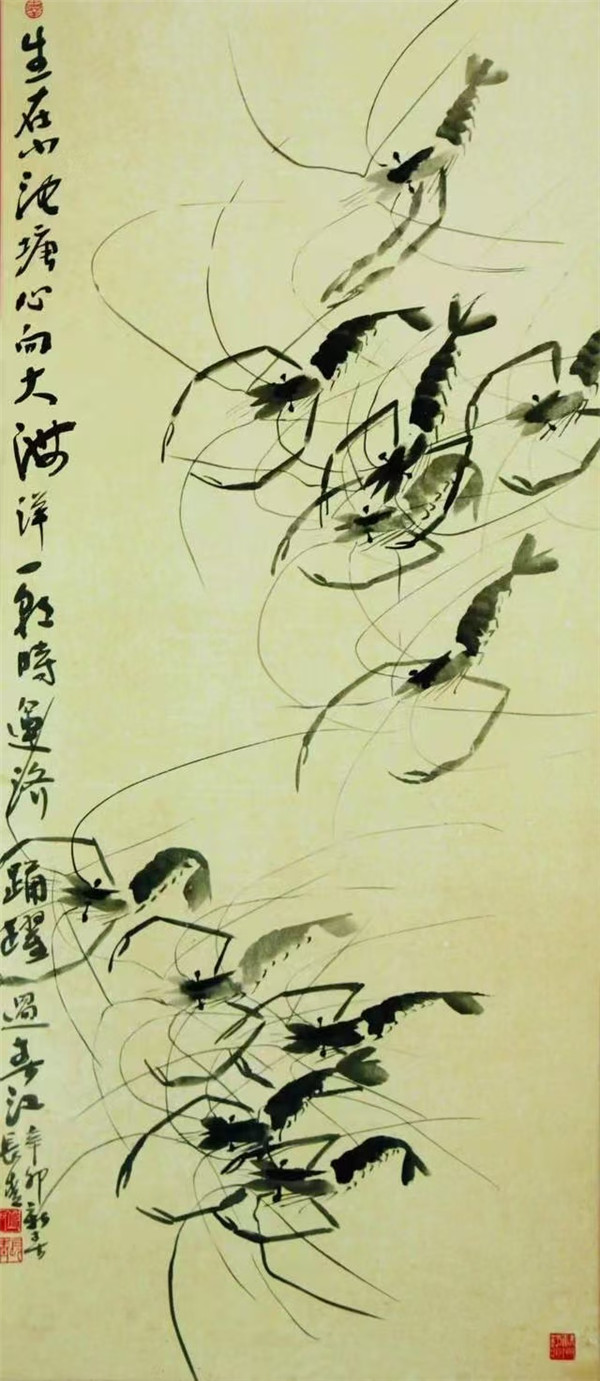 生在小池塘心向大海洋一朝時運濟踊躍過春江
辛卯新春
長